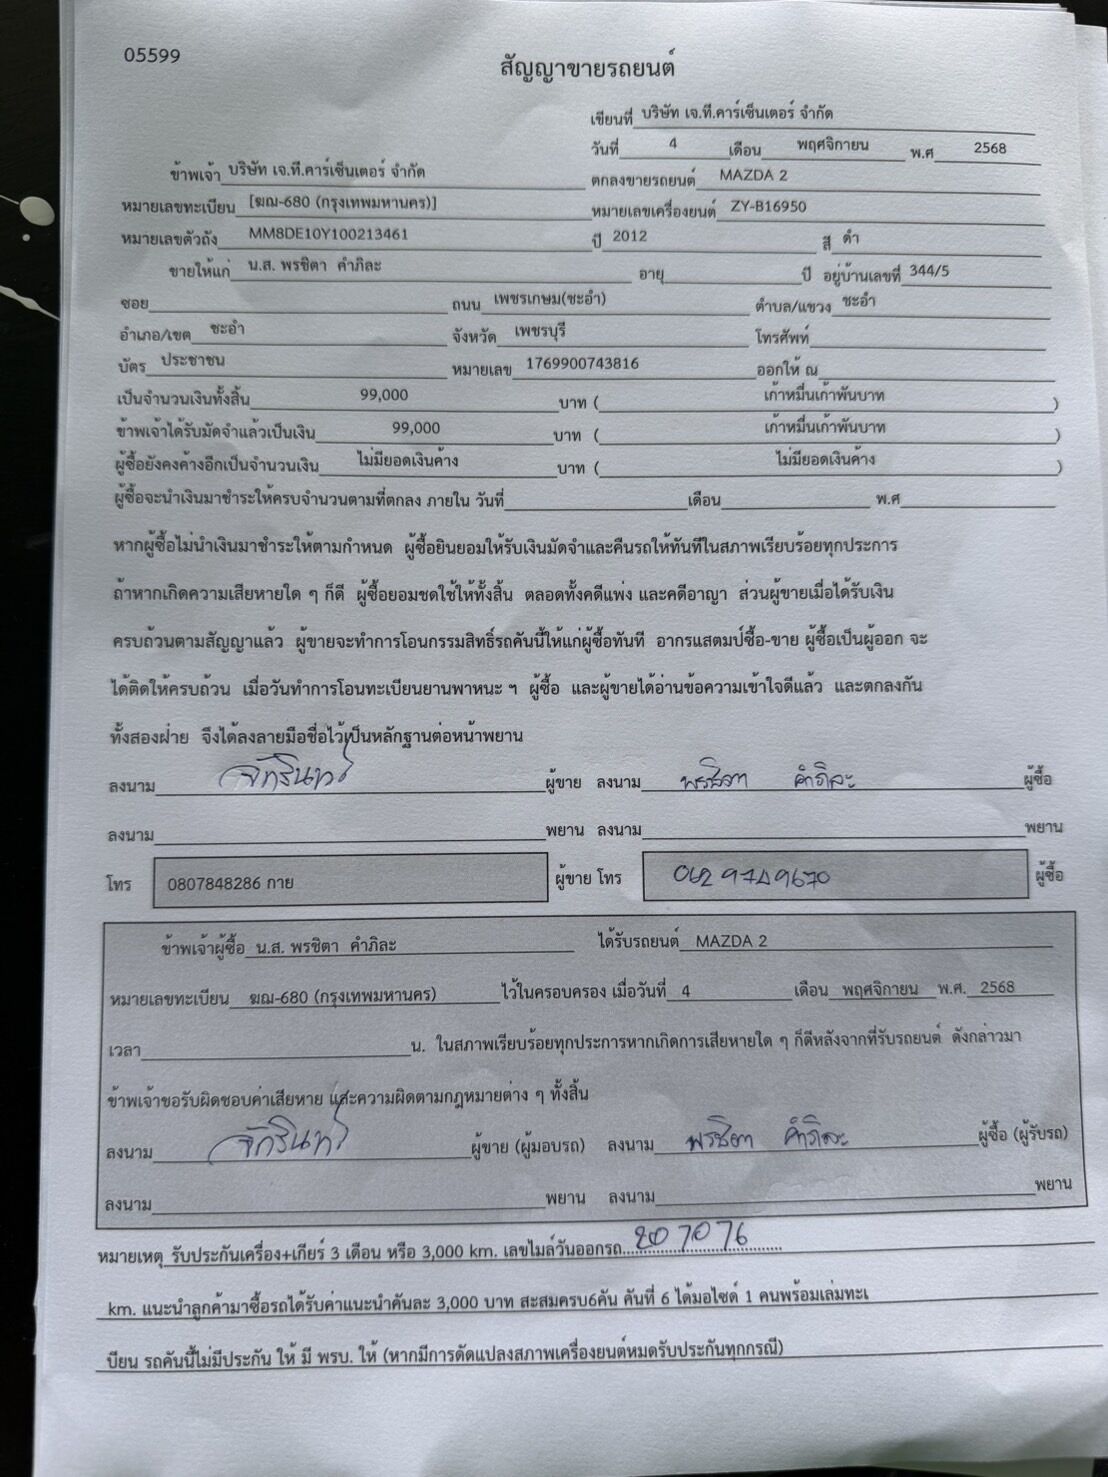 05599
สัญญาขายรถยนต์
เขียนที่ บริษัท เจ.ที.คาร์เซ็นเตอร์ จำกัด
วันที่ 4 เดือน พฤศจิกายน พ.ศ 2568
ข้าพเจ้า บริษัท เจ.ที.คาร์เซ็นเตอร์ จำกัด ตกลงขายรถยนต์ MAZDA 2
หมายเลขทะเบียน [ฆฌ-680 (กรุงเทพมหานคร)] หมายเลขเครื่องยนต์ ZY-B16950
หมายเลขตัวถัง MM8DE10Y100213461 ปี 2012 สี ดำ
ขายให้แก่ น.ส. พรชิตา คำภิละ อายุ ปี อยู่บ้านเลขที่ 344/5
ซอย ถนน เพชรเกษม(ชะอำ) ตำบล/แขวง ชะอำ
อำเภอ/เขต ชะอำ จังหวัด เพชรบุรี โทรศัพท์
บัตร ประชาชน หมายเลข 1769900743816 ออกให้ ณ
เป็นจำนวนเงินทั้งสิ้น 99,000 บาท ( เก้าหมื่นเก้าพันบาท )
ข้าพเจ้าได้รับมัดจำแล้วเป็นเงิน 99,000 บาท ( เก้าหมื่นเก้าพันบาท )
ผู้ซื้อยังคงค้างอีกเป็นจำนวนเงิน ไม่มียอดเงินค้าง บาท ( ไม่มียอดเงินค้าง )
ผู้ซื้อจะนำเงินมาชำระให้ครบจำนวนตามที่ตกลง ภายใน วันที่ เดือน พ.ศ
หากผู้ซื้อไม่นำเงินมาชำระให้ตามกำหนด ผู้ซื้อยินยอมให้รับเงินมัดจำและคืนรถให้ทันทีในสภาพเรียบร้อยทุกประการ
ถ้าหากเกิดความเสียหายใด ๆ ก็ดี ผู้ซื้อยอมชดใช้ให้ทั้งสิ้น ตลอดทั้งคดีแพ่ง และคดีอาญา ส่วนผู้ขายเมื่อได้รับเงิน
ครบถ้วนตามสัญญาแล้ว ผู้ขายจะทำการโอนกรรมสิทธิ์รถคันนี้ให้แก่ผู้ซื้อทันที อากรแสตมป์ซื้อ-ขาย ผู้ซื้อเป็นผู้ออก จะ
ได้ติดให้ครบถ้วน เมื่อวันทำการโอนทะเบียนยานพาหนะ ฯ ผู้ซื้อ และผู้ขายได้อ่านข้อความเข้าใจดีแล้ว และตกลงกัน
ทั้งสองฝ่าย จึงได้ลงลายมือชื่อไว้เป็นหลักฐานต่อหน้าพยาน
ลงนาม จักรินทร์ ผู้ขาย ลงนาม พรชิตา คำภิละ ผู้ซื้อ
ลงนาม พยาน ลงนาม พยาน
โทร 0807848286 กาย ผู้ขาย โทร 0629749670 ผู้ซื้อ
ข้าพเจ้าผู้ซื้อ น.ส. พรชิตา คำภิละ ได้รับรถยนต์ MAZDA 2
หมายเลขทะเบียน ฆฌ-680 (กรุงเทพมหานคร) ไว้ในครอบครอง เมื่อวันที่ 4 เดือน พฤศจิกายน พ.ศ. 2568
เวลา น. ในสภาพเรียบร้อยทุกประการหากเกิดการเสียหายใด ๆ ก็ดีหลังจากที่รับรถยนต์ ดังกล่าวมา
ข้าพเจ้าขอรับผิดชอบค่าเสียหาย และความผิดตามกฎหมายต่าง ๆ ทั้งสิ้น
ลงนาม จักรินทร์ ผู้ขาย (ผู้มอบรถ) ลงนาม พรชิตา คำภิละ ผู้ซื้อ (ผู้รับรถ)
ลงนาม พยาน ลงนาม พยาน
หมายเหตุ รับประกันเครื่อง+เกียร์ 3 เดือน หรือ 3,000 km. เลขไมล์วันออกรถ 207076
km. แนะนำลูกค้ามาซื้อรถได้รับค่าแนะนำคันละ 3,000 บาท สะสมครบ6คัน คันที่ 6 ได้มอไซด์ 1 คนพร้อมเล่มทะเ
บียน รถคันนี้ไม่มีประกัน ให้ มี พรบ. ให้ (หากมีการดัดแปลงสภาพเครื่องยนต์หมดรับประกันทุกกรณี)